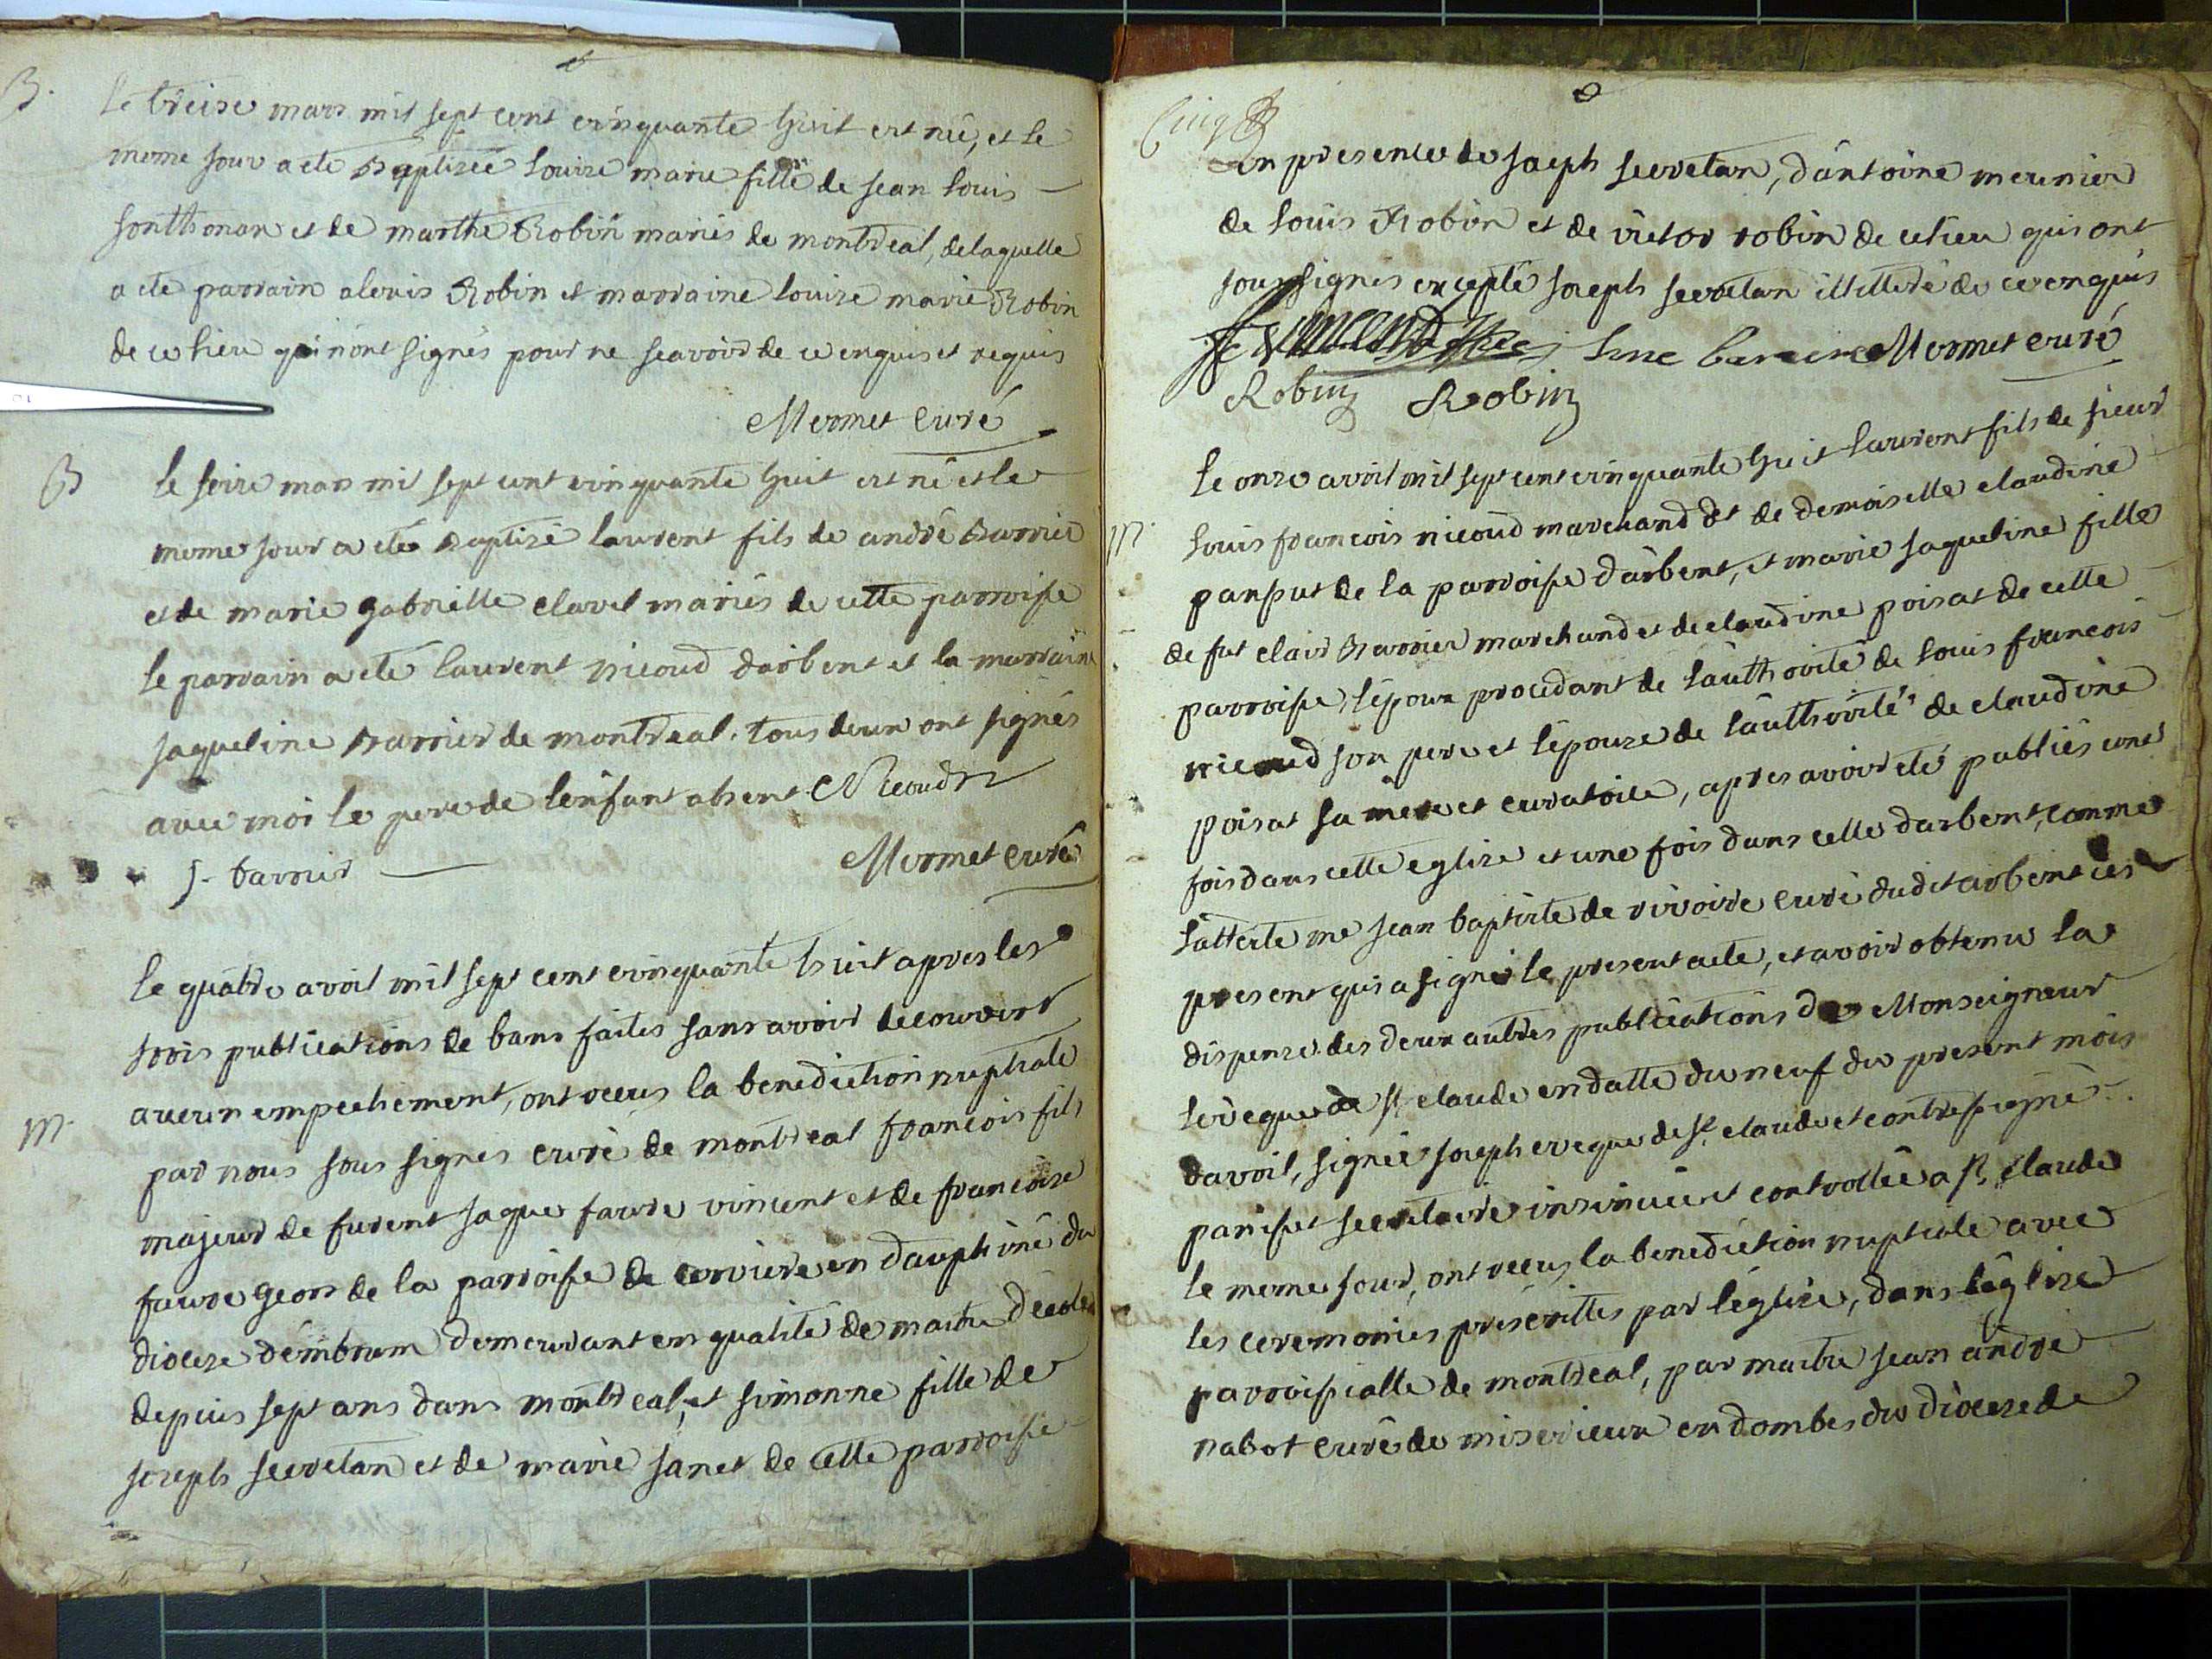 B.
Le treise mars mil sept cent cinquante huit est née, et le
meme jour a ete Baptizée Louise marie fille de jean louis
sonthonax et de marthe Robin mariés de montreal, de laquelle
a ete parrain alexis Robin et marraine louise marie Robin
de ce lieu qui n'ont signés pour ne scavoir de ce enquis et requis
Mermet curé
B
le seize mars mil sept cent cinquante huit est né et le
meme jour a ete Baptizé laurent fils de andré Barrier
et de marie gabrielle clavel mariés de cette parroisse
le parrain a eté laurent nicoud darbent et la marraine
jaqueline Barrier de montreal. tous deux ont signés
avec moi le pere de l'enfant absent Nicoud
j. barrier
Mermet curé
le quatre avril mil sept cent cinquante huit apres les
trois publications de bans faites sans avoir decouvert
aucun empechement, ont reçus la benediction nuptiale
m.
par nous sous signes curé de montreal françois fils
majeur de furent jaque faure vincent et de françoise
faure geors de la parroisse de cerviere en dauphiné du
dioceze d'embrum demeurant en qualité de maitre d'ecole
depuis sept ans dans montreal, et simonne fille de
joseph secretan et de marie janet de cette parroisse
Cinq
en presence de joseph secretan, d'antoine meunier
de louis Robin et de victor robin de ce lieu qui ont
soussignés excepté joseph secretan illitteré de ce enquis
Mermet curé
Robin Robin
le onze avril mil sept cent cinquante huit laurent fils de sieur
m.
louis françois nicoud marchand et de demoiselle claudine
panput de la parroisse d'arbent, et marie jaqueline fille
de fut clair Barrier marchand et de claudine poisat de cette
parroisse, l'epoux procedant de l'authorité de louis françois
nicoud son pere et l'epouze de l'authorité de claudine
poisat sa mere et curatrice, apres avoir eté publiés une
fois dans cette eglize et une fois dans celle darbent, comme
l'atteste me jean baptiste de rivoire curé dudit arbent ici
present qui a signé le present acte, et avoir obtenu la
dispenze des deux autres publications de Monseigneur
l'eveque de st claude en datte du neuf du present mois
davril, signée joseph eveque de st claude et contresigné
paniset secretaire insinuée et controllée a st claude
le meme jour, ont reçus la benediction nuptiale avec
les ceremonies prescrittes par l'eglize, dans l'eglize
parroissialle de montreal, par maitre jean andré
nabot curé de miserieux en dombes du dioceze de